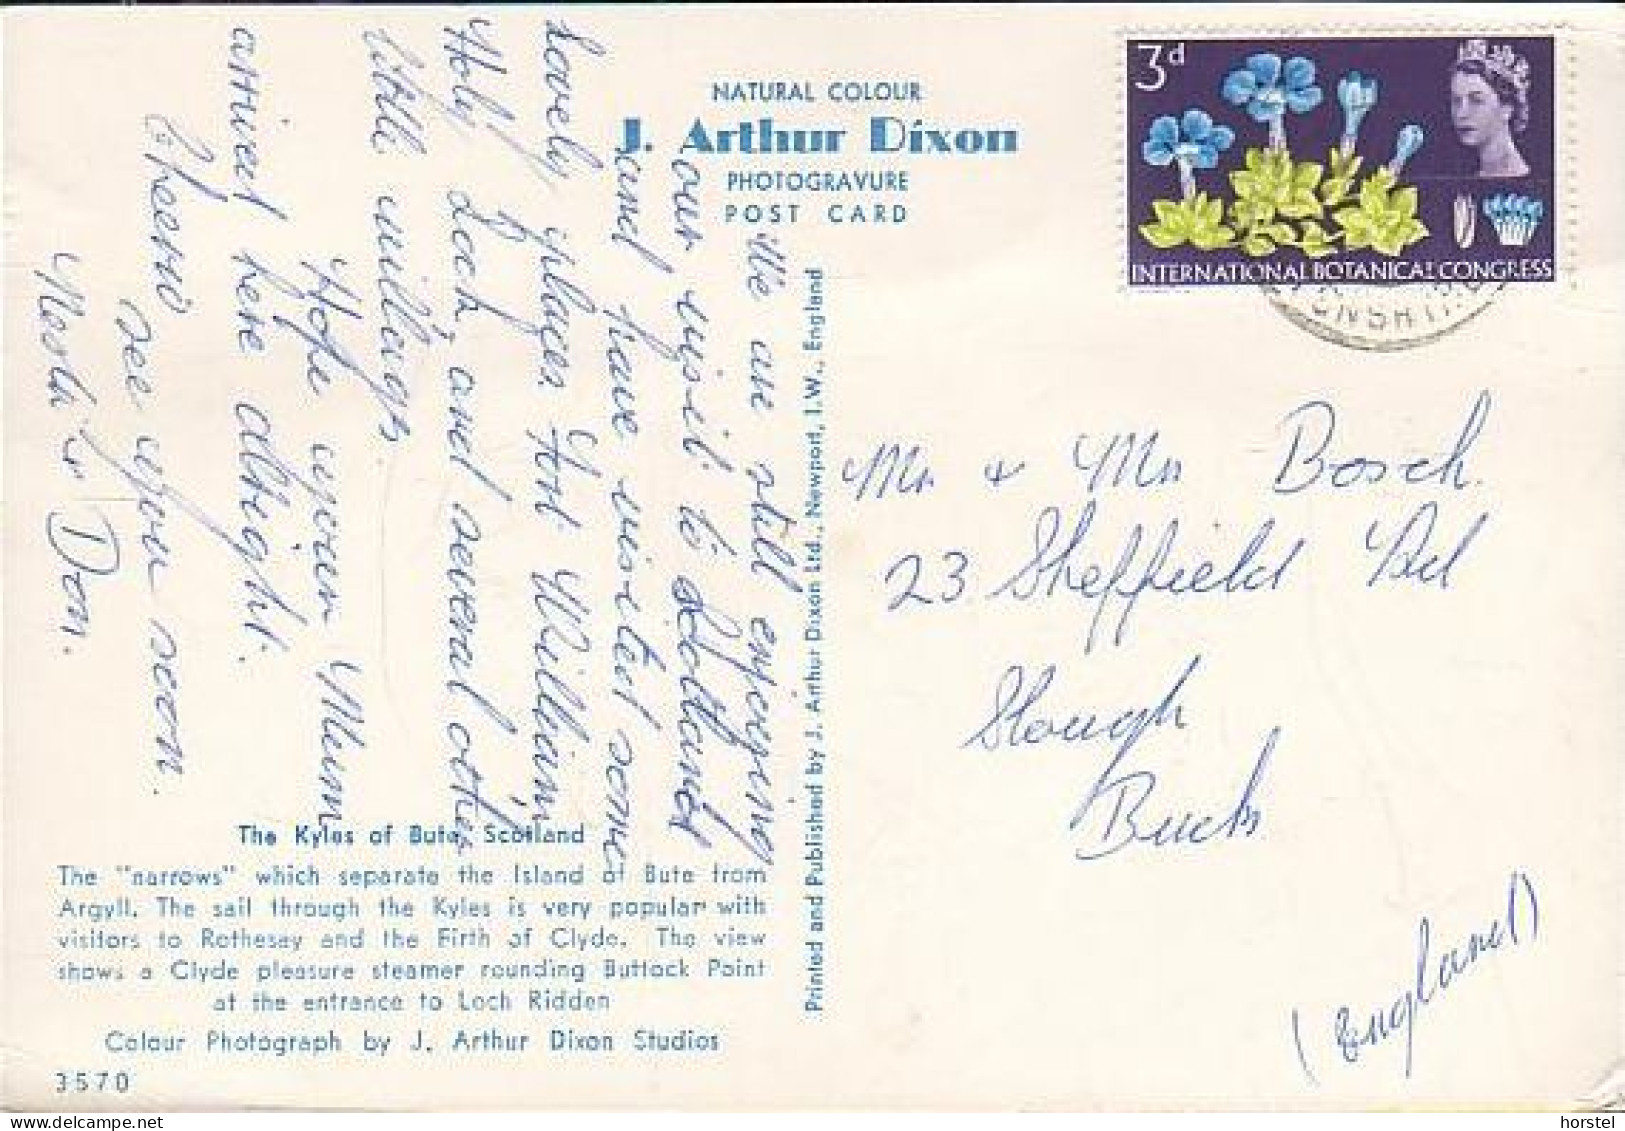 NATURAL COLOUR
J. Arthur Dixon
PHOTOGRAVURE
POST CARD
3d
INTERNATIONAL BOTANICAL CONGRESS
We are still enjoying
our visit to Scotland
and have visited some
lovely places Fort William
Holy Lock, and several other
little villages.
Hope your Mum
arrived here alright.
Cheerio
see you soon.
Don.
Printed and Published by J. Arthur Dixon Ltd., Newport, I.W., England
Mr & Mrs Bosch.
23 Sheffield Rd
Slough
Bucks
(England)
The Kyles of Bute, Scotland
The "narrows" which separate the Island of Bute from
Argyll. The sail through the Kyles is very popular with
visitors to Rothesay and the Firth of Clyde. The view
shows a Clyde pleasure steamer rounding Buttock Point
at the entrance to Loch Ridden
Colour Photograph by J. Arthur Dixon Studios
3570
horstel